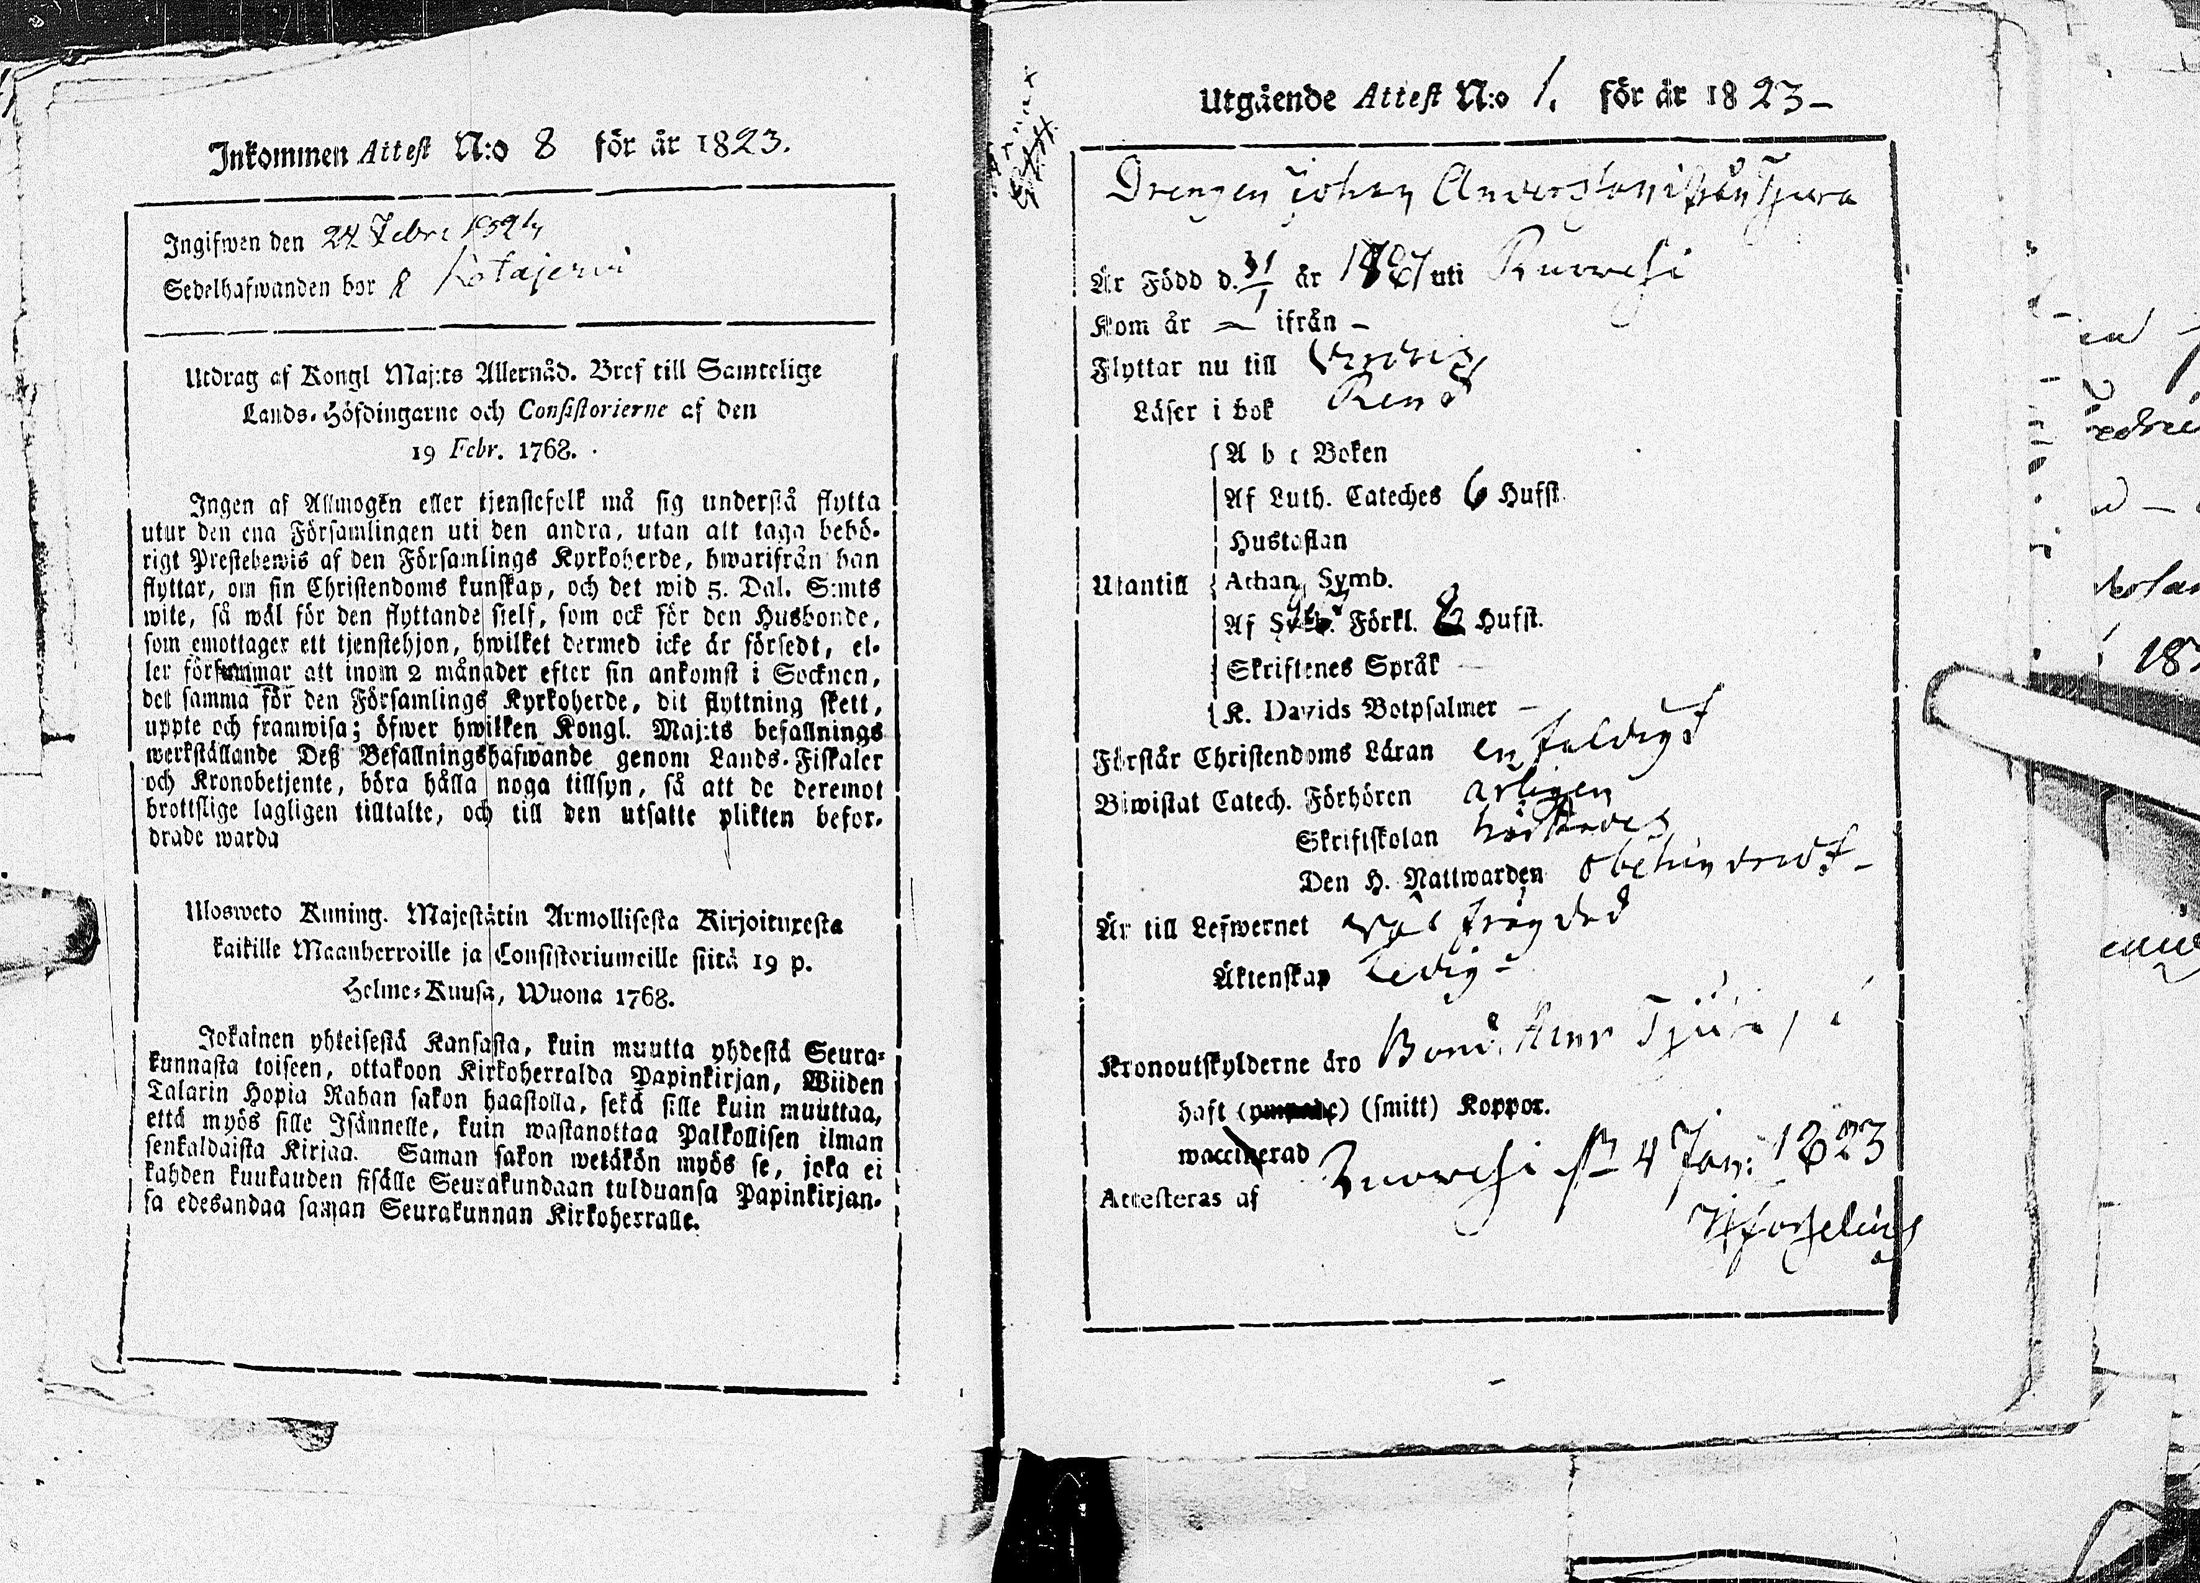 Inkommen Attest N:o 8 för år 1823.
Ingifwen den 24 Febr 1824
Sedelhafwanden bor Kotajerwi
Utdrag af Kongl Maj:ts Allernåd. Bref till Samtelige
Lands-Höfdingarne och Consistorierne af den
19 Febr. 1768.
Ingen af Allmogen eller tjenstefolk må sig understå flytta
utur den ena Församlingen uti den andra, utan att taga behö-
rigt Prestebewis af den Församlings Kyrkoherde, hwarifrån han
flyttar, om sin Christendoms kunskap, och det wid 5. Dal. S:mts
wite, så wäl för den flyttande sielf, som ock för den Husbonde,
som emottager ett tjenstehjon, hwilket dermed icke är försedt, el-
ler försummar att inom 2 månader efter sin ankomst i Socknen,
det samma för den Församlings Kyrkoherde, dit flyttning skett,
uppte och framwisa; öfwer hwilken Kongl. Maj:ts befallnings
werkställande Deß Befallningshafwande genom Lands-Fiskaler
och Kronobetjente, böra hålla noga tillsyn, så att de deremot
brottslige lagligen tilltalte, och till den utsatte plikten befor-
drade warda
Ulosweto Kuning. Majestätin Armollisesta Kirjoituxesta
kaikille Maanherroille ja Consistoriumeille siitä 19 p.
Helme-Kuusa, Wuona 1768.
Jokainen yhteisestä Kansasta, kuin muutta yhdestä Seura-
kunnasta toiseen, ottakoon Kirkoherralda Papinkirjan, Wiiden
Talarin Hopia Rahan sakon haastolla, sekä sille kuin muuttaa,
että myös sille Isännelle, kuin wastanottaa Palkollisen ilman
senkaldaista Kirjaa. Saman sakon wetäkön myös se, joka ei
kahden kuukauden sisälle Seurakundaan tulduansa Papinkirjan-
sa edesandaa saman Seurakunnan Kirkoherralle.
Utgående Attest N:o 1. för år 1823 –
Drengen Johan Andersson ifrån
Är Född d. 31/1 år uti Ruovesi
Kom år – ifrån –
Flyttar nu till
Läser i bok Rent
A b c Boken
Af Luth. Cateches 6 Hufst.
Hustaflan
Utantill Athan. Symb.
Af Förkl. Hufst.
Skriftenes Språk –
K. Davids Botpsalmer –
Förstår Christendoms Läran enfaldigt
Biwistat Catech. Förhören årligen
Skriftskolan
Den H. Nattwarden obehindradt –
Är till Lefwernet wäl frägdad
Äktenskap Ledig –
Kronoutskylderne äro
haft () (smitt) Koppor.
waccinerad
Attesteras af Ruovesi 4 Jan: 1823